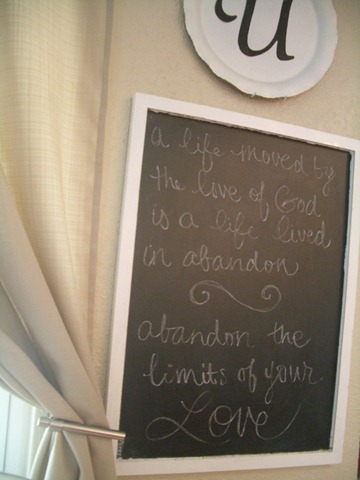 U
a life moved by
the love of God
is a life lived
in abandon
abandon the
limits of your
Love